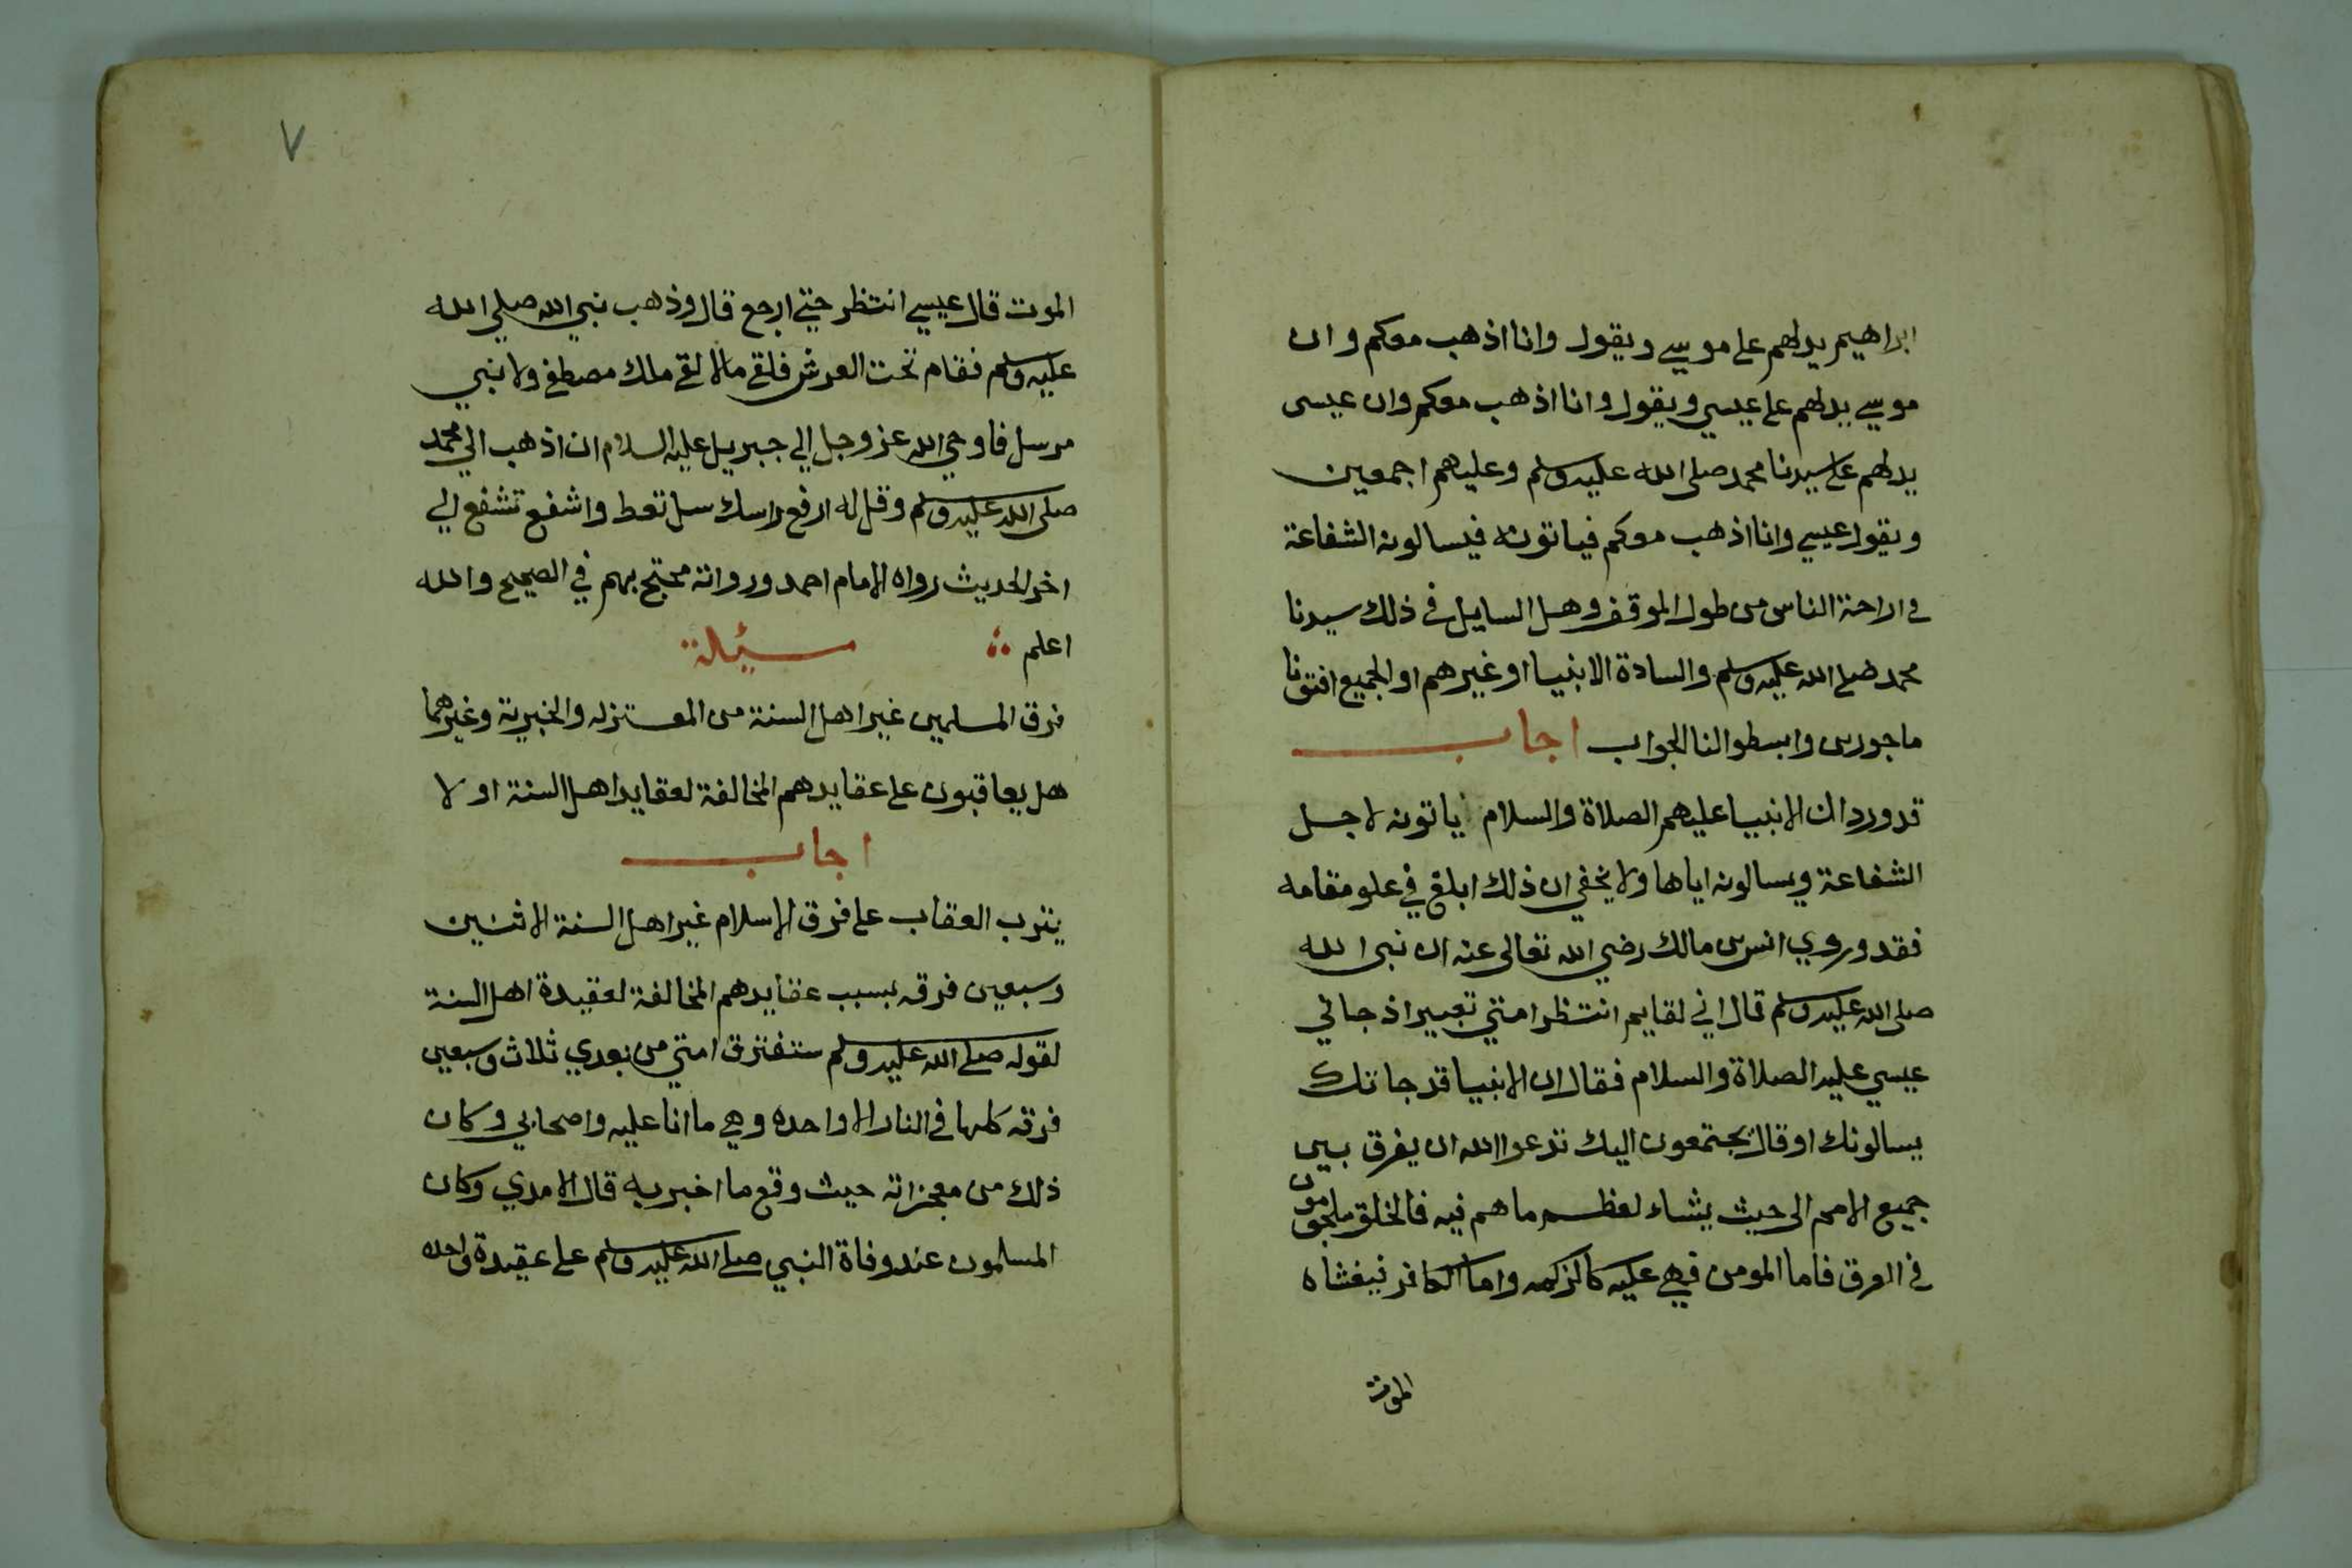 ابراهيم يدلهم على موسي ويقول وانا اذهب معكم وان
موسي يدلهم على عيسي ويقول وانا اذهب معكم وان عيسى
يدلهم على سيدنا محمد صلى الله عليه وسلم وعليهم اجمعين
ويقول عيسي وانا اذهب معكم فياتونه فيسالونه الشفاعة
في اراحة الناس من طول الموقف وهل السايل في ذلك سيدنا
محمد صلى الله عليه وسلم والسادة الانبيا او غيرهم او الجميع افتونا
ماجورين وابسطوا لنا الجواب اجاب
قد ورد ان الانبيا عليهم الصلاة والسلام ياتونه لاجل
الشفاعة ويسالونه اياها ولا يخفي ان ذلك ابلغ في علو مقامه
فقد وروي انس بن مالك رضي الله تعالى عنه ان نبى الله
صلى الله عليه وسلم قال اني لقايم انتظر امتي تعبير اذ جاني
عيسي عليه الصلاة والسلام فقال ان الانبيا قد جاتك
يسالونك او قال يجتمعون اليك تدعوا الله ان يفرق بين
جميع الامم الى حيث يشاء لعظم ما هم فيه فالخلق ملجمون
في العرق فاما المومن فهي عليه كالزكمه واما الكافر فيغشاه
الموت
٧
الموت قال عيسي انتظر حتي ارجع قال وذهب نبي الله صلي الله
عليه وسلم فقام تحت العرش فلقي مالا لقي ملك مصطفي ولا نبي
مرسل فاوحي الله عز وجل الي جبريل عليه السلام ان اذهب الي محمد
صلى الله عليه وسلم وقل له ارفع راسك سل تعط واشفع تشفع الي
اخر الحديث رواه الامام احمد ورواته محتج بهم في الصحيح والله
اعلم سيالة
فرق المسلمين غير اهل السنة من المعتزله والخبرية وغيرهما
هل يعاقبون على عقايدهم المخالفة لعقايد اهل السنة او لا
اجاب
يترب العقاب على فرق الاسلام غير اهل السنة الاثنين
وسبعين فرقه بسبب عقايدهم المخالفة لعقيدة اهل السنة
لقوله صلى الله عليه وسلم ستفترق امتي من بعدي ثلاث وسبعين
فرقه كلها في النار الا واحده وهي ما انا عليه واصحابي وكان
ذلك من معجزاته حيث وقع ما اخبر به قال الامدي وكان
المسلمون عند وفاة النبي صلى الله عليه وسلم على عقيدة واحده